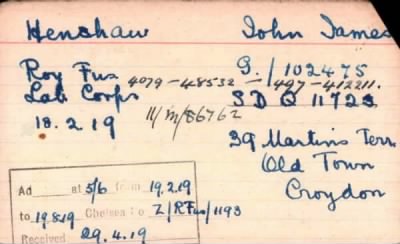 Henshaw John James
Roy Fus 4079-48532 - 497-412211.
G./102475
Lab Corps 11/M/86762 SDQ 11723
18.2.19
39 Martins Terr
Old Town
Croydon
Ad at 5/6 from 19.2.19
to 19.8.19 Chelsea No Z/RFus/1193
Received 29.4.19